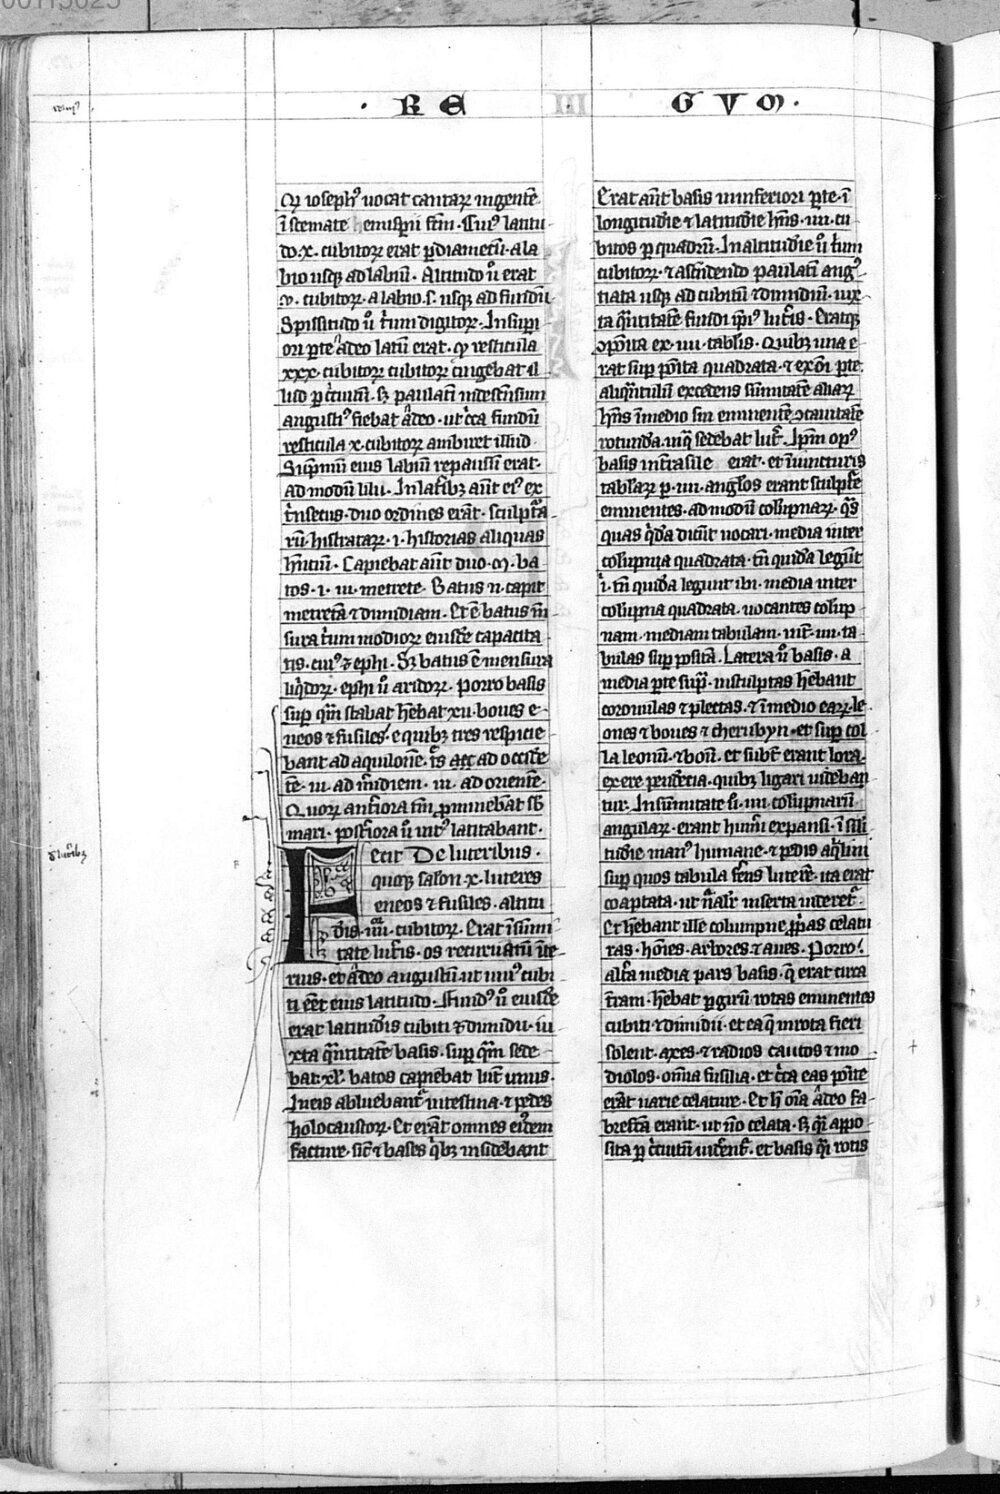 · R E III G V M ·
qͥ ioseph᷒ uocat cantarꝝ ingentē
ī scemate emisperii fcm̄ · Cui᷒ latitu
do · x · cubitoꝝ erat ꝑ diametrū · a la
bio usqꝫ ad labiū · Altitudo ů erat
v · cubitoꝝ · a labio · s · usqꝫ ad fundū
Spissitudo ů triū digitoꝝ · In supi
ori ꝑte adeo latū erat · qͥ resticula
xxx · cubitoꝝ cubitoꝝ cīngebat il
lud ꝑ circuitū · sꝫ paulatī in descēsum
angusti᷒ fiebat adeo · ut circa fundū
resticula x · cubitoꝝ ambiret illud ·
Supmū eius labiū repaussū erat ·
ad modū lilii · In latībꝫ aūt ei᷒ ex
trīsecus · duo ordines erāt · sculptᵃ
rū · histratarꝝ · i · historias aliquas
hn̄tiū · Capiebat aūt duo · m̄ · ba
tos · i · iii · metrete · Batus n̄ capit
metretā ⁊ dimidiam · Et ē batus m̄
sura triū modioꝝ eiusdē capacita
tis · cui᷒ ⁊ ephi · Sꝫ batus ē mensura
liqͥdoꝝ · ephi ů aridoꝝ · Porro basis
sup qͣm stabat hēbat xii · boues e
neos ⁊ fusiles · e quibꝫ tres respicie
bant ad aquilonē · ad occidē
tē · iii · ad m̄idiem · iii · ad orientē ·
Quoꝝ anťiora tm̄ ꝓminebāt sb̄
mari · posťiora ů int᷒ latitabant ·
d' luťibꝫ
Fecit De luteribus ·
quoqꝫ salon · x · luteres
eneos ⁊ fusiles · altitu
dīs · iiii · cubitoꝝ · Erat ī summi
tate luťis · os recuruatū īte
rius · et adeo angustū ut uni᷒ cubi
ti eēt eius latitudo · Fund᷒ ů eiusdē
erat latitudīs cubiti ⁊ dimidii · iu
xta qͣntitatē basis · sup qͣm sede
bat · xl · batos capiebat lut̄ unus ·
In eis abluebant᷑ intestina · ⁊ pedes
holocaustoꝝ · Et erāt omnes eiꝰdem
facture · sic̄ ⁊ bases qͥbꝫ insidebant
Erat aūt basis in inferiori ꝑte · ī
longitudīe ⁊ latitudīe hn̄s · iiii · cu
bitos ꝑ quadrū · In altitudīe ů triū
cubitoꝝ · ⁊ ascēdendo paulatī ang᷒
tiata usqꝫ ad cubitū ⁊ dimidiū · iux
ta qͣntitatē fundi ip̄i᷒ luťis · Eratqꝫ
ꝯpoīta ex · iiii · tabľis · Quibꝫ una e
rat sup poīta quadrata · ⁊ ex oī ꝑte
aliqͣntulū excedens sūmitatē aliaꝝ
hn̄s ī medio sui eminentē ꝯcauitatē
rotundā · in qͣ sedebat lut̄ · Ip̄m op᷒
basis inťrasile erat · et ī iuncturis
tabľaꝝ ꝑ · iiii · angľos erant sculptē
eminentes · ad modū colūpnaꝝ · qͣs
quas qͥdā dicūt uocari · media inter
colūpnia quadrata · tn̄ quidā legūt
i · tn̄ quidā legunt ibi · media inter
colūpnia quadrata · uocantes colūp
nam · mediam tabulam · int̄ · iiii · ta
bulas sup positā · Latera ů basis · a
media ꝑte sup̄ · insculptas hēbant
coronulas ⁊ plectas · ⁊ ī medio eaꝝ · le
ones ⁊ boues ⁊ cherubyn · et sup col
la leonū · ⁊ boū · et subť erant lora
ex ere pendētia · quibꝫ ligari uidebān
tur · In sūmitate ů · iiii · colūpnarū
angulaꝝ · erant humi expansi · ī sili
tudīe man᷒ humane · ⁊ pedis aqͥlini
sup quos tabula sedens luterē · ita erat
coaptata · ut nͣalr̄ inserta uideret᷑ ·
Et hēbant ille columpne ꝓpͥas celatu
ras · hoīes · arbores · ⁊ aues · Porro
alťa media pars basis · q̄ erat circa
terram · hēbat ꝑ girū rotas eminentes
cubiti ⁊ dimidii · et ea q̄ in rota fieri
solent · axes · ⁊ radios cantos ⁊ mo
diolos · omīa fusilia · et circa eas poīte
erāt uarie celature · Et h̄ oīa adeo fa
brefcā erant · ut nō celata · sꝫ qͣi appo
sita ꝑ circuitū uidrēt᷑ · et basis qͣi rotis